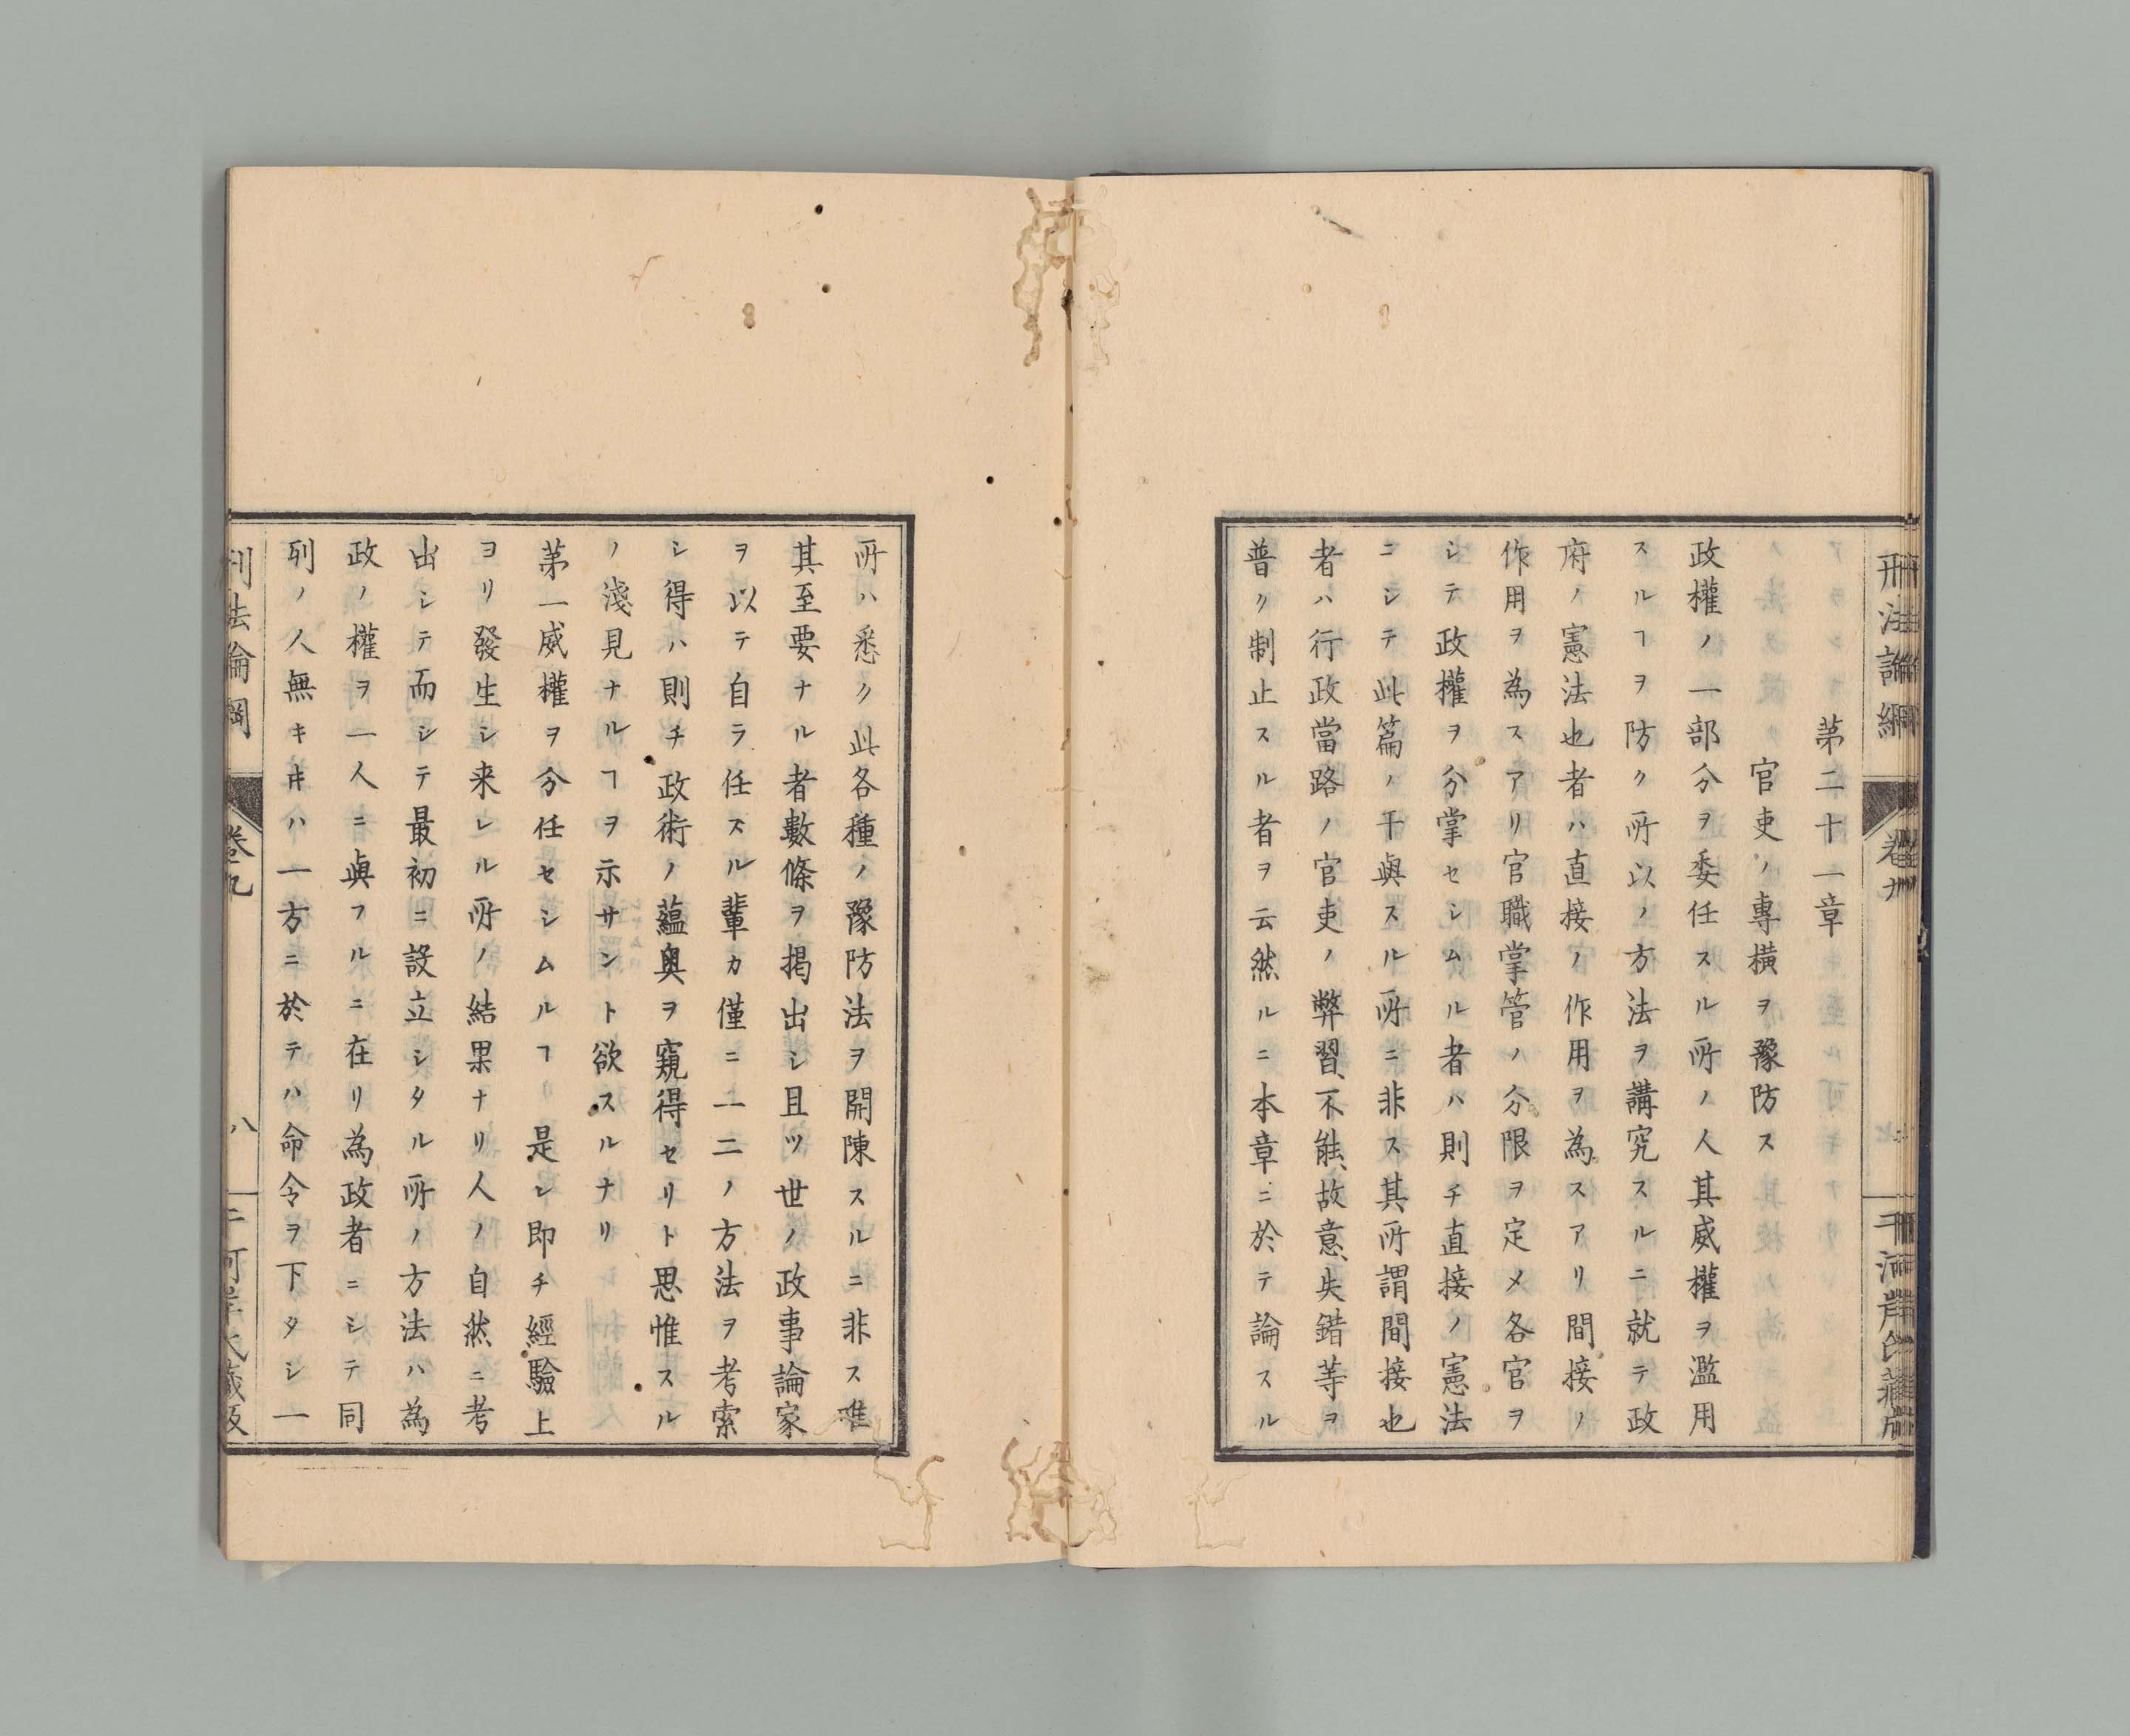 刑法論綱
卷九
千河岸氏藏版
第二十一章
官吏ノ專横ヲ豫防ス
政權ノ一部分ヲ委任スル所ノ人其威權ヲ濫用
スルヿヲ防ク所以ノ方法ヲ講究スルニ就テ政
府ノ憲法也者ハ直接ノ作用ヲ為スアリ間接ノ
作用ヲ為スアリ官職掌管ノ分限ヲ定メ各官ヲ
シテ政權ヲ分掌セシムル者ハ則チ直接ノ憲法
ニシテ此篇ノ干與スル所ニ非ス其所謂間接也
者ハ行政當路ノ官吏ノ弊習、不能、故意、失錯等ヲ
普ク制止スル者ヲ云然ルニ本章ニ於テ論スル
所ハ悉ク此各種ノ豫防法ヲ開陳スルニ非ス唯
其至要ナル者數條ヲ掲出シ且ツ世ノ政事論家
ヲ以テ自ラ任スル輩カ僅ニ一二ノ方法ヲ考索
シ得ハ則チ政術ノ蘊奥ヲ窺得セリト思惟スル
ノ淺見ナルヿヲ示サント欲スルナリ
第一威權ヲ分任セシムルヿ 是レ即チ經驗上
ヨリ發生シ来レル所ノ結果ナリ人ノ自然ニ考
出シテ而シテ最初ニ設立シタル所ノ方法ハ為
政ノ權ヲ一人ニ與フルニ在リ為政者ニシテ同
列ノ人無キキハ一方ニ於テハ命令ヲ下タシ一
刑法論綱
卷九
八
千河岸氏藏版